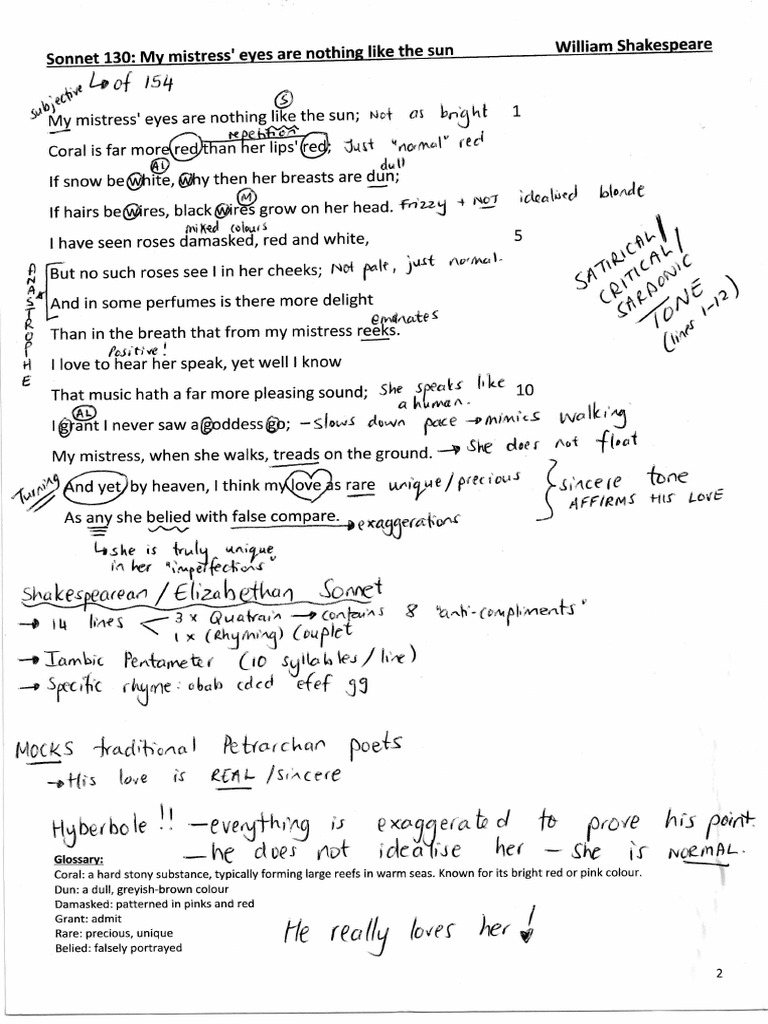 Sonnet 130: My mistress' eyes are nothing like the sun William Shakespeare
subjective ↳ of 154
My mistress' eyes are nothing like the sun; Not as bright 1
S
repetition
Coral is far more red than her lips' red; Just "normal" red
AL dull
If snow be white, why then her breasts are dun;
M
If hairs be wires, black wires grow on her head. Frizzy + NOT idealised blonde
mixed colours
I have seen roses damasked, red and white, 5
But no such roses see I in her cheeks; Not pale, just normal.
ANASTROPHE
And in some perfumes is there more delight
SATIRICAL/
CRITICAL/
SARDONIC
TONE
(lines 1-12)
emanates
Than in the breath that from my mistress reeks.
Positive!
I love to hear her speak, yet well I know
That music hath a far more pleasing sound; She speaks like 10
a human.
AL
I grant I never saw a goddess go; - slows down pace → mimics walking
My mistress, when she walks, treads on the ground. → She does not float
Turning And yet by heaven, I think my love as rare unique/precious
sincere tone
AFFIRMS HIS LOVE
As any she belied with false compare. → exaggerations
↳ she is truly unique
in her "imperfections"
Shakespearean / Elizabethan Sonnet
→ 14 lines < 3 x Quatrain → contains 8 "anti-compliments"
1 x (Rhyming) Couplet
→ Iambic Pentameter (10 syllables/line)
→ Specific rhyme: abab cdcd efef gg
MOCKS traditional Petrarchan poets
→ His love is REAL /sincere
Hyberbole!! - everything is exaggerated to prove his point.
- he does not idealise her - she is NORMAL.
Glossary:
Coral: a hard stony substance, typically forming large reefs in warm seas. Known for its bright red or pink colour.
Dun: a dull, greyish-brown colour
Damasked: patterned in pinks and red
Grant: admit
Rare: precious, unique
Belied: falsely portrayed
He really loves her!
2